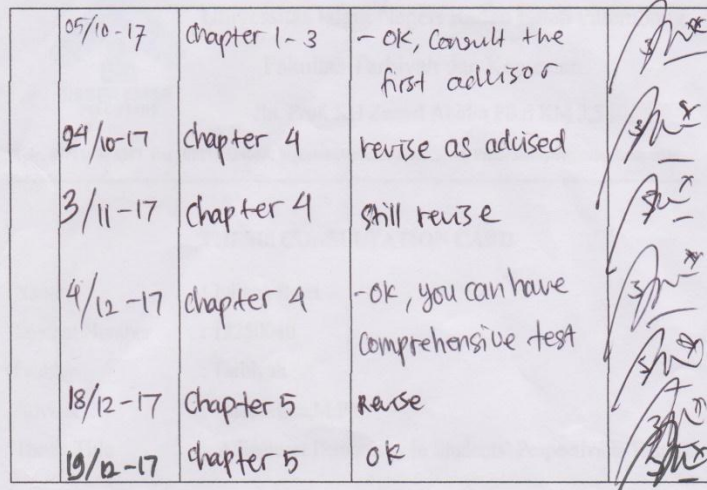 05/10-17 Chapter 1-3 - OK, Consult the
first advisor
24/10-17 chapter 4 revise as adcised
3/11-17 Chapter 4 still revise
4/12-17 chapter 4 -OK, you can have
comprehensive test
18/12-17 Chapter 5 Revise
19/12-17 chapter 5 OK